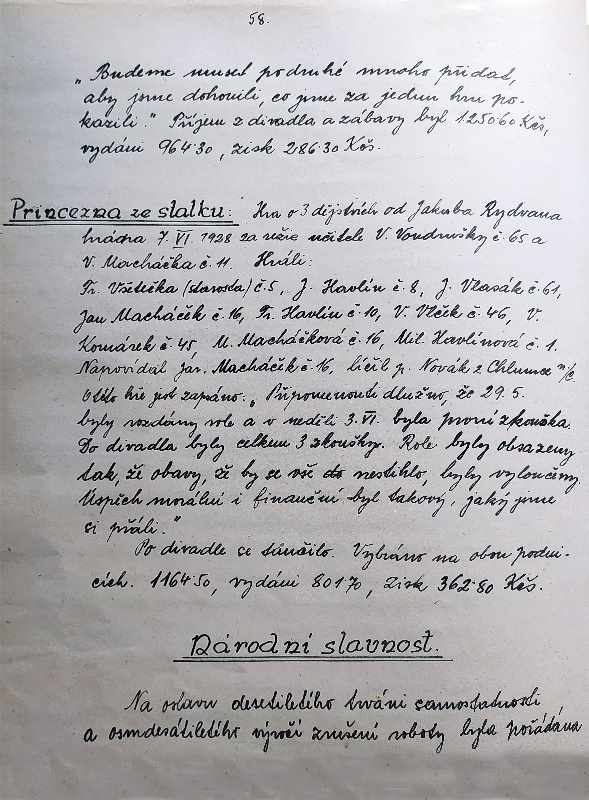 58.
„Budeme muset podruhé mnoho přidat,
aby jsme dohonili, co jsme za jednu hru po-
kazili." Příjem z divadla a zábavy byl 1250·60 Kčs,
vydání 964·30, zisk 286·30 Kčs.
Princezna ze statku: Hra o 3 dějstvích od Jakuba Rydvana
hrána 7. VI. 1928 za režie učitele V. Voudrušky č. 65 a
V. Macháčka č. 11. Hráli:
Fr. Všetečka (starosta) č. 5, J. Havlín č. 8, J. Vlasák č. 61,
Jan Macháček č. 16, Fr. Havlín č. 10, V. Vlček č. 46, V.
Komárek č. 45, M. Macháčková č. 16, Mil. Havlínová č. 1.
Napovídal Jar. Macháček č. 16, líčil p. Novák z Chlumce n/C
O této hře jest zapsáno: „Připomenouti dlužno, že 29. 5.
byly rozdány role a v neděli 3. VI. byla první zkouška.
Do divadla byly celkem 3 zkoušky. Role byly obsazeny
tak, že obavy, že by se vše nestihlo, byly vyloučeny.
Úspěch morální i finanční byl takový, jaký jsme
si přáli."
Po divadle se tančilo. Vybráno na obou podni-
cích. 1164·50, vydání 801·70, zisk 362·80 Kčs.
Národní slavnost.
Na oslavu desetiletého trvání samostatnosti
a osmdesátiletého výročí zrušení roboty byla pořádána